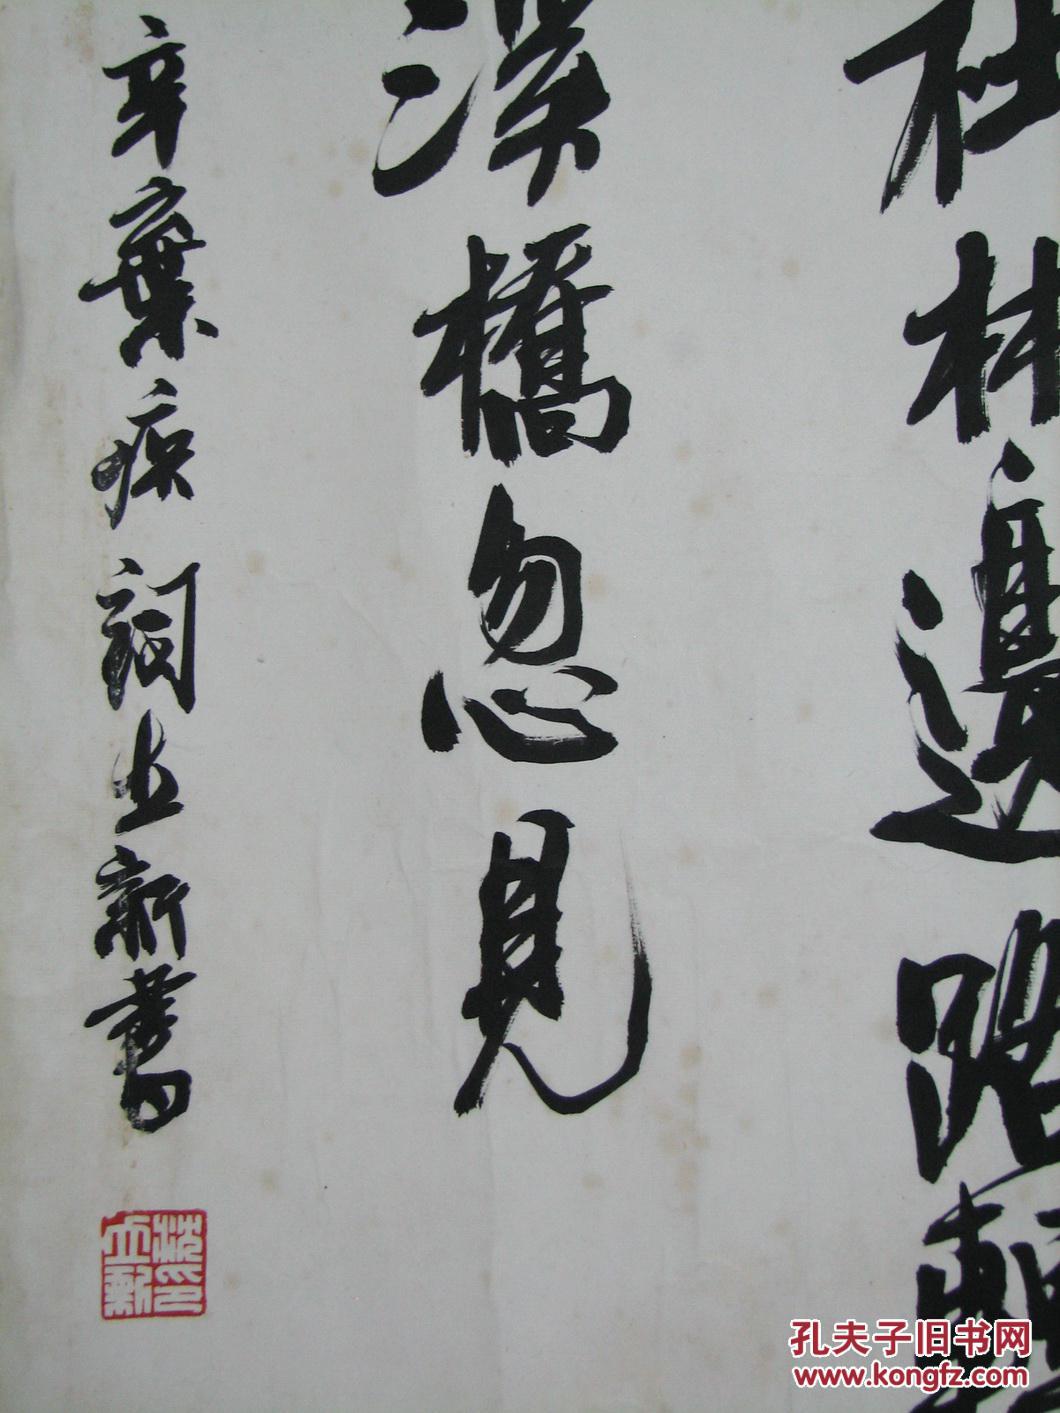 社林邊路轉
溪橋忽見
辛棄疾詞立新書
沈立新印
孔夫子旧书网
www.kongfz.com